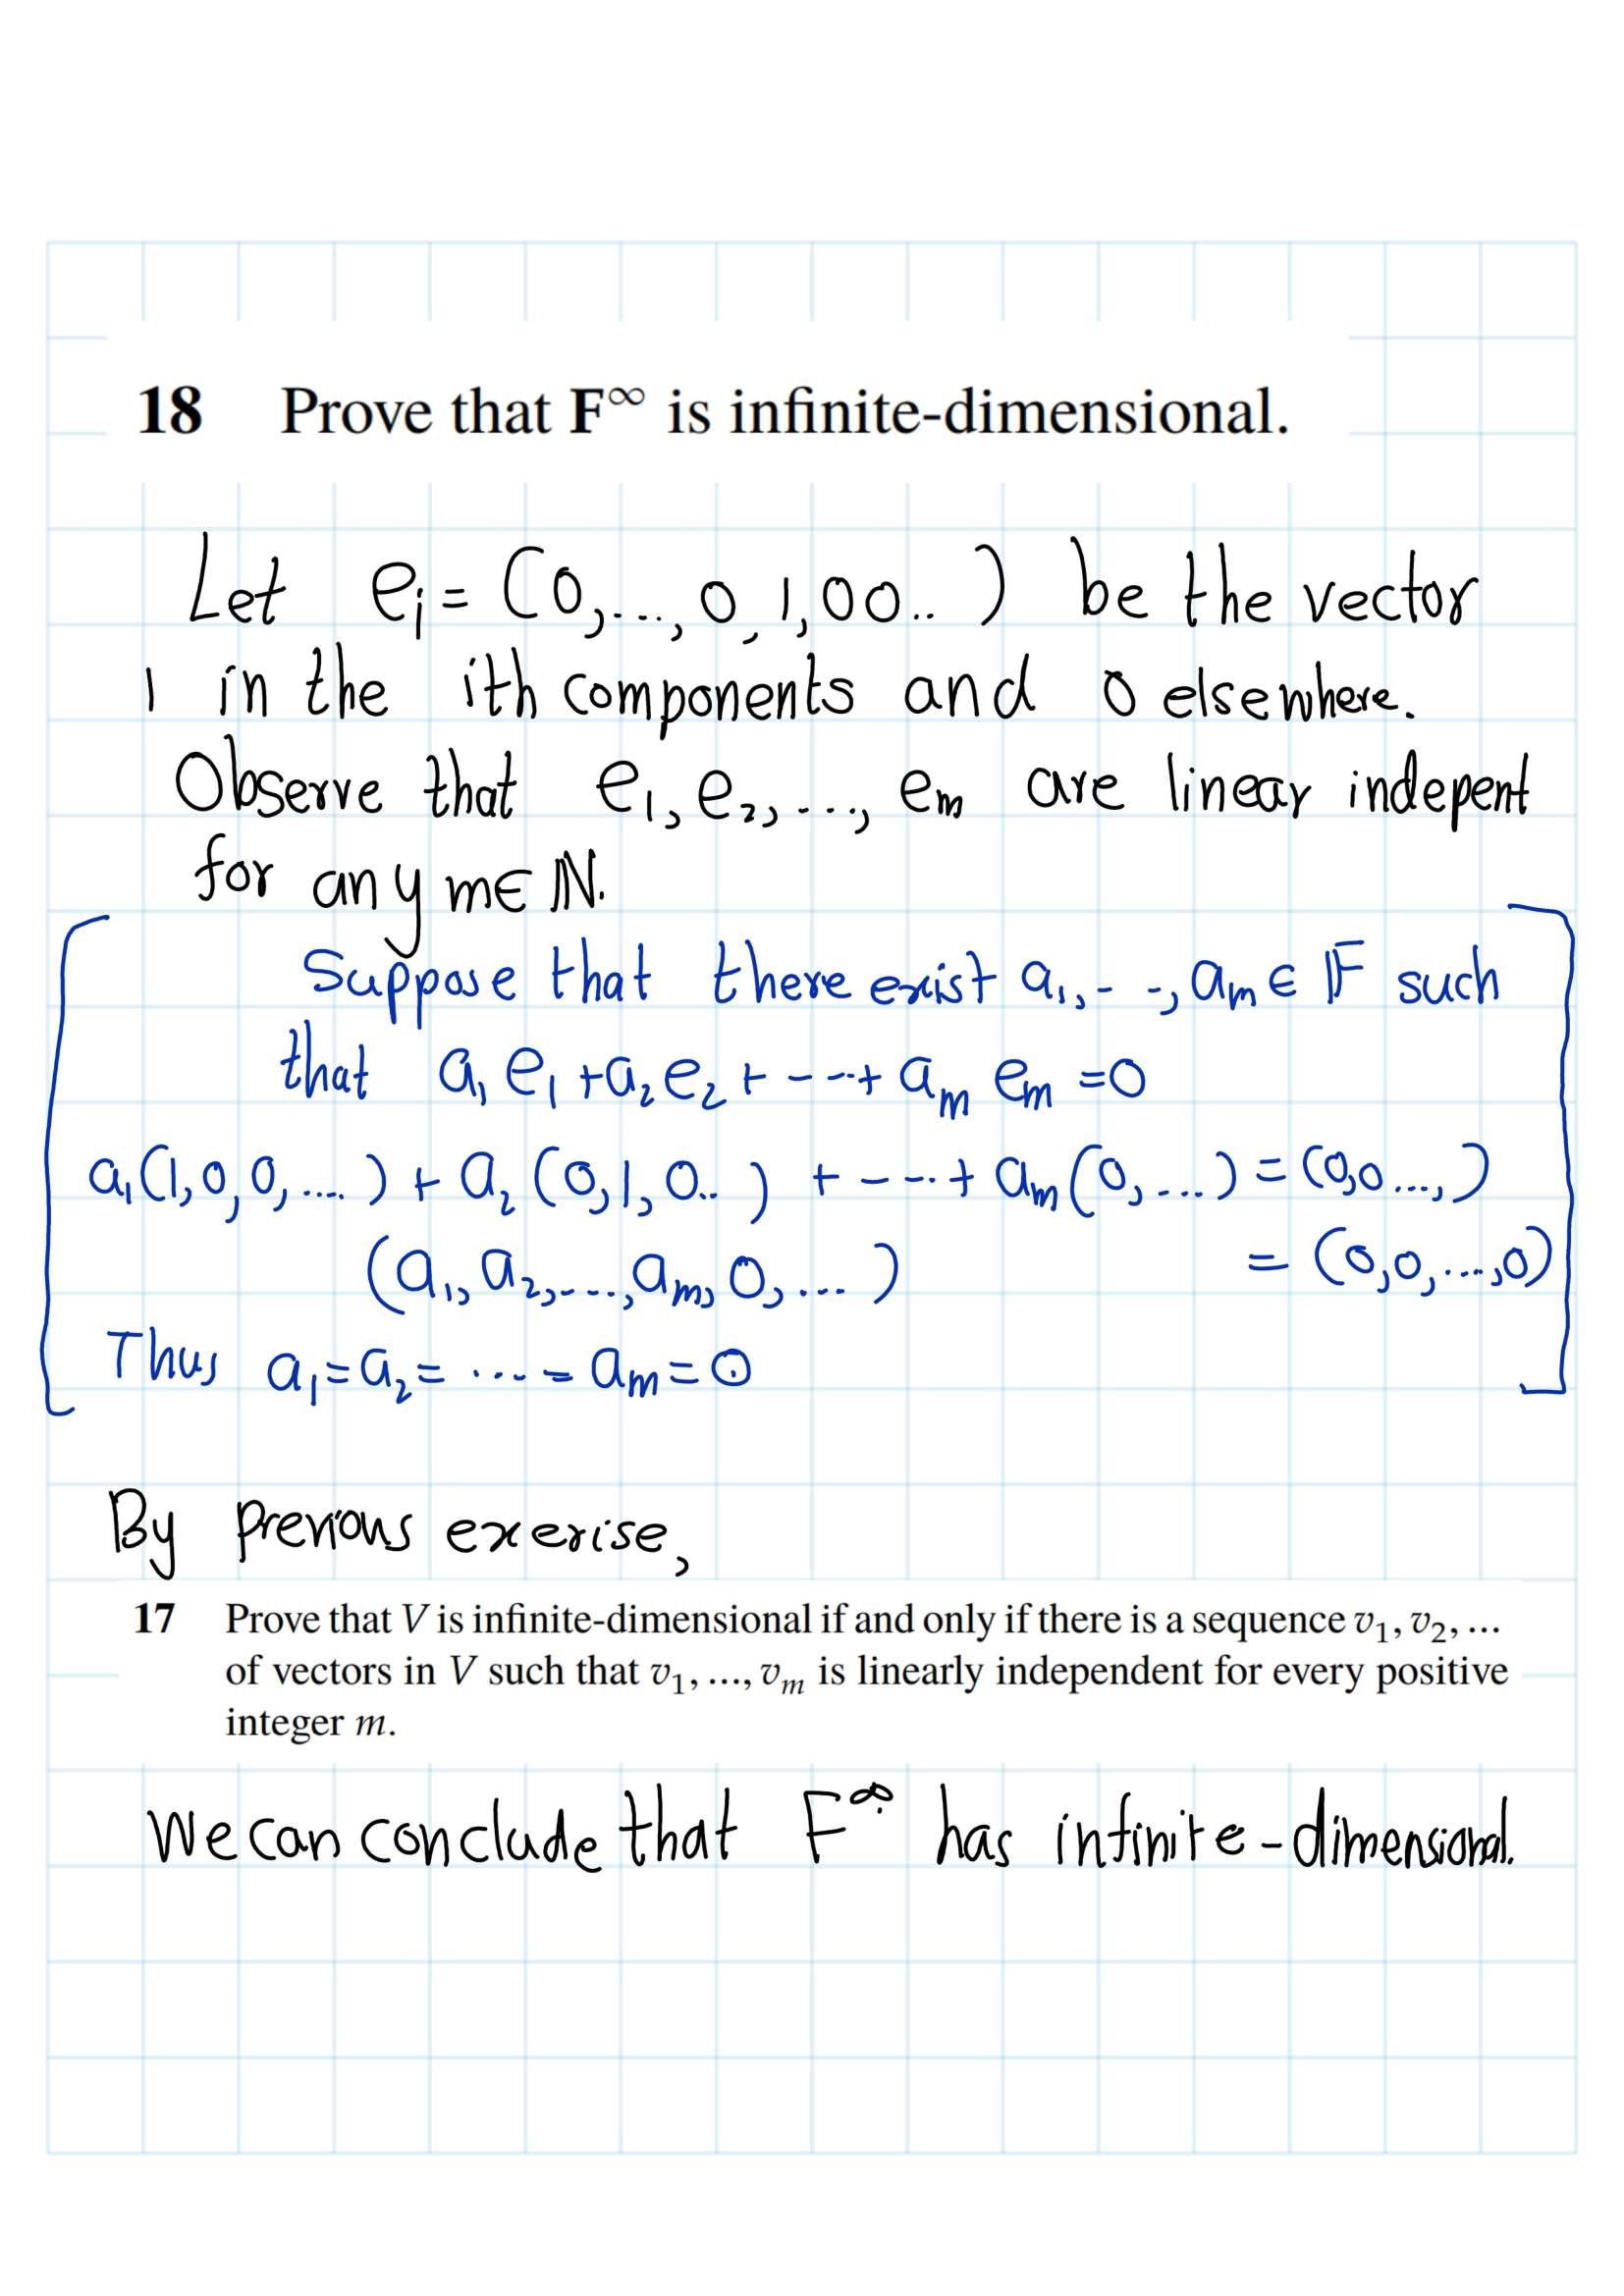 18 Prove that F∞ is infinite-dimensional.
Let ei = (0,...,0,1,00..) be the vector
1 in the ith components and 0 elsewhere.
Observe that e1, e2, ..., em are linear indepent
for any m∈ℕ.
Suppose that there exist a1, - -, am ∈ 𝔽 such
that a1e1+a2e2+ - - - ·+ am em =0
a1(1,0,0,....) + a2(0,1,0..) + - - - ·+ am(0,....) = (0,0...,)
(a1, a2, ..., am, 0, ...) = (0,0,...,0)
Thus a1=a2= ....= am=0
By previous exerise,
17 Prove that V is infinite-dimensional if and only if there is a sequence v1, v2, ...
of vectors in V such that v1, ..., vm is linearly independent for every positive
integer m.
We can conclude that F∞ has infinite-dimensional.